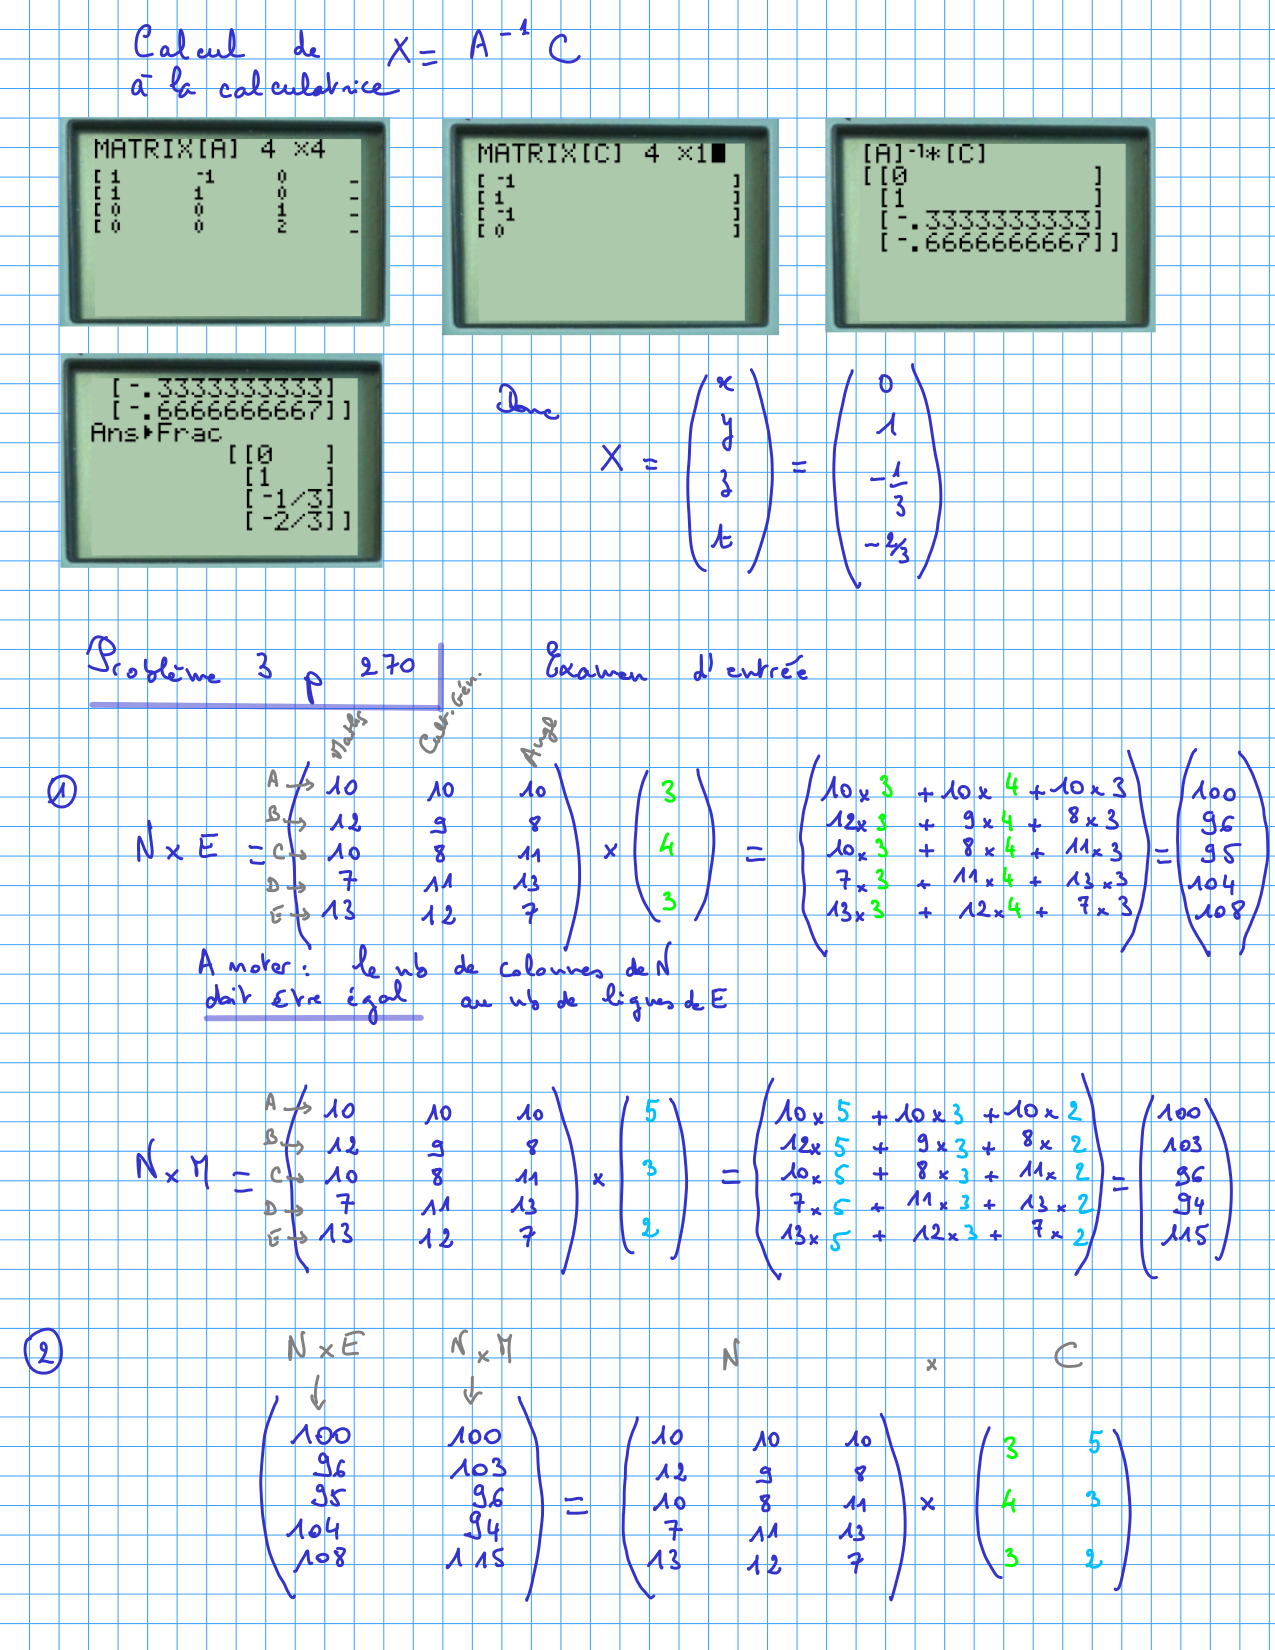 Calcul de X = A⁻¹ C
à la calculatrice
MATRIX[A] 4 ×4
[ 1 -1 0 -
[ 1 1 0 -
[ 0 0 1 -
[ 0 0 2 -
MATRIX[C] 4 ×1
[ -1 ]
[ 1 ]
[ -1 ]
[ 0 ]
[A]⁻¹*[C]
[[0 ]
[1 ]
[-.3333333333]
[-.6666666667]]
[-.3333333333]
[-.6666666667]]
Ans▸Frac
[[0 ]
[1 ]
[-1/3]
[-2/3]]
Donc
X = ( x y z t ) = ( 0 1 -1/3 -2/3 )
Problème 3 p 270 Examen d'entrée
Maths Cult. Gén. Angl
①
N × E =
A → 10 10 10
B → 12 9 8
C → 10 8 11
D → 7 11 13
E → 13 12 7
×
3
4
3
=
10 × 3 + 10 × 4 + 10 × 3
12 × 3 + 9 × 4 + 8 × 3
10 × 3 + 8 × 4 + 11 × 3
7 × 3 + 11 × 4 + 13 × 3
13 × 3 + 12 × 4 + 7 × 3
=
100
96
95
104
108
A noter : le nb de colonnes de N
doit être égal au nb de lignes de E
N × M =
A → 10 10 10
B → 12 9 8
C → 10 8 11
D → 7 11 13
E → 13 12 7
×
5
3
2
=
10 × 5 + 10 × 3 + 10 × 2
12 × 5 + 9 × 3 + 8 × 2
10 × 5 + 8 × 3 + 11 × 2
7 × 5 + 11 × 3 + 13 × 2
13 × 5 + 12 × 3 + 7 × 2
=
100
103
96
94
115
②
N × E N × M N × C
↓ ↓
100 100
96 103
95 96
104 94
108 115
=
10 10 10
12 9 8
10 8 11
7 11 13
13 12 7
×
3 5
4 3
3 2